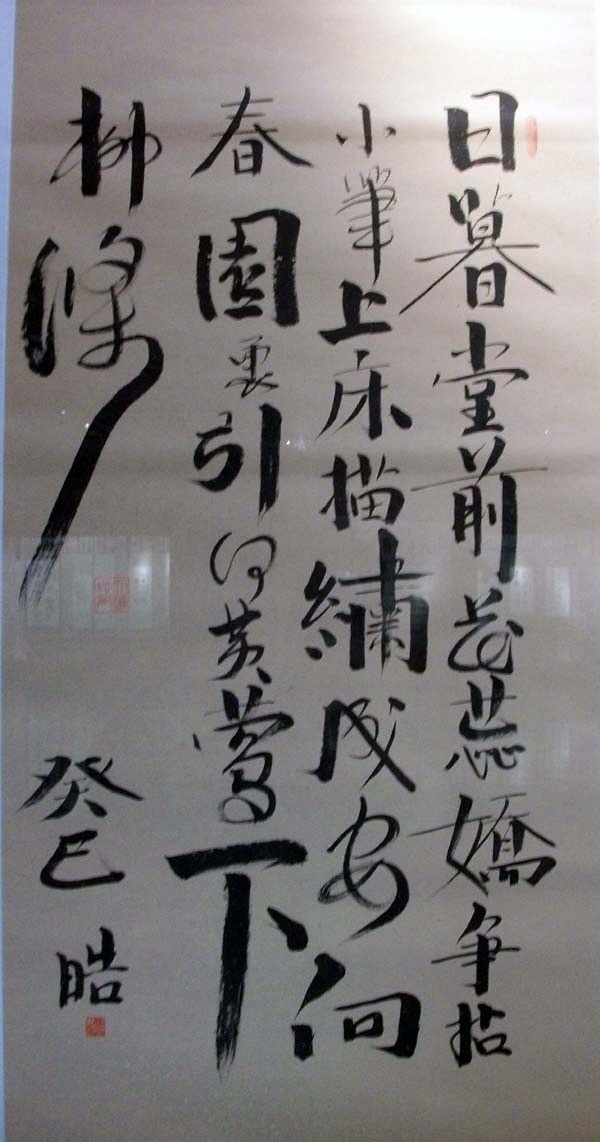 日暮堂前花蕊嬌争拈
小筆上床描繡成安向
春園裏引得黄鶯下
柳條
癸巳 皓